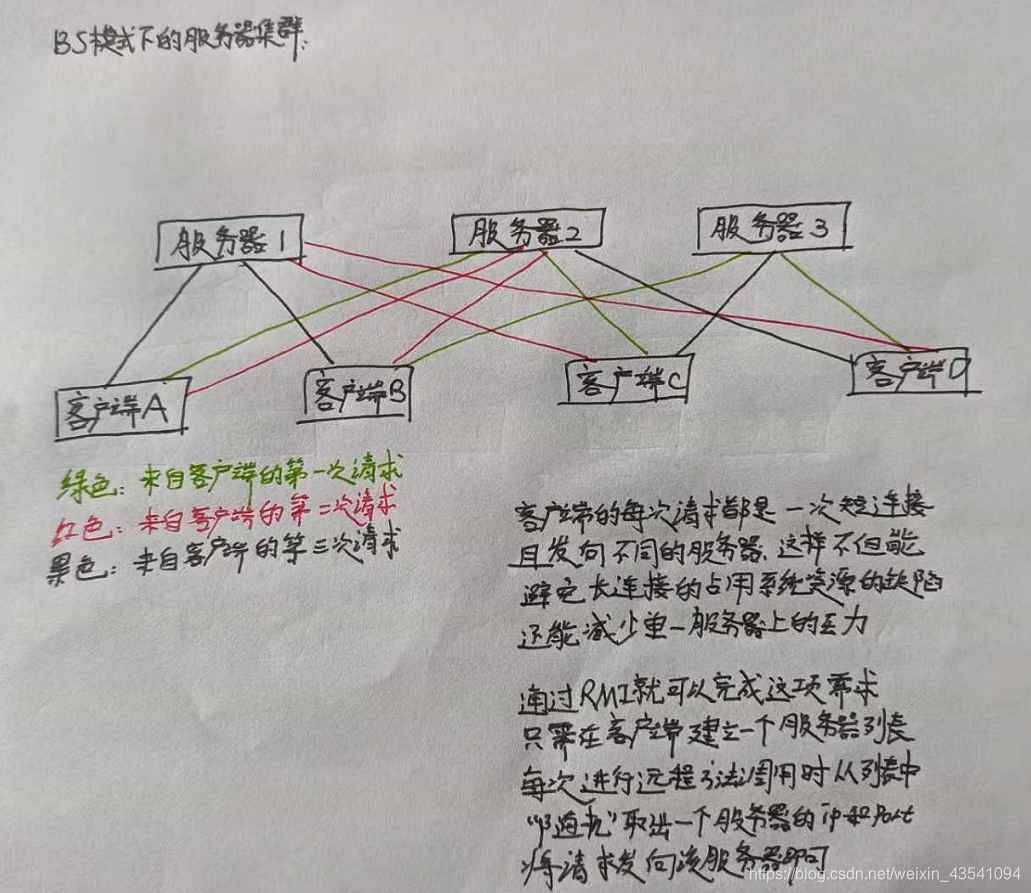 BS模式下的服务器集群:
服务器1
服务器2
服务器3
客户端A
客户端B
客户端C
客户端D
绿色: 来自客户端的第一次请求
红色: 来自客户端的第二次请求
黑色: 来自客户端的第三次请求
客户端的每次请求都是一次短连接
且发向不同的服务器.这样不但能
避免长连接的占用系统资源的缺陷
还能减少单一服务器上的压力
通过RMI就可以完成这项需求
只需在客户端建立一个服务器列表
每次进行远程方法调用时从列表中
"随机"取出一个服务器的ip和Port
将请求发向该服务器即可
https://blog.csdn.net/weixin_43541094